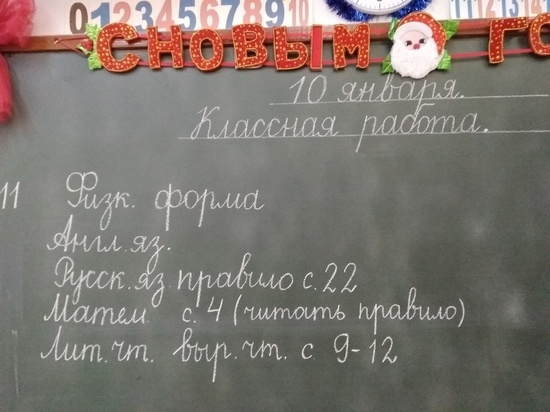 0123456789 10 11 12 13 14
С НОВЫМ ГО
10 января.
Классная работа.
11 Физк. форма
Англ. яз.
Русск. яз. правило с. 22
Матем с. 4 (читать правило)
Лит. чт. выр. чт. с 9-12